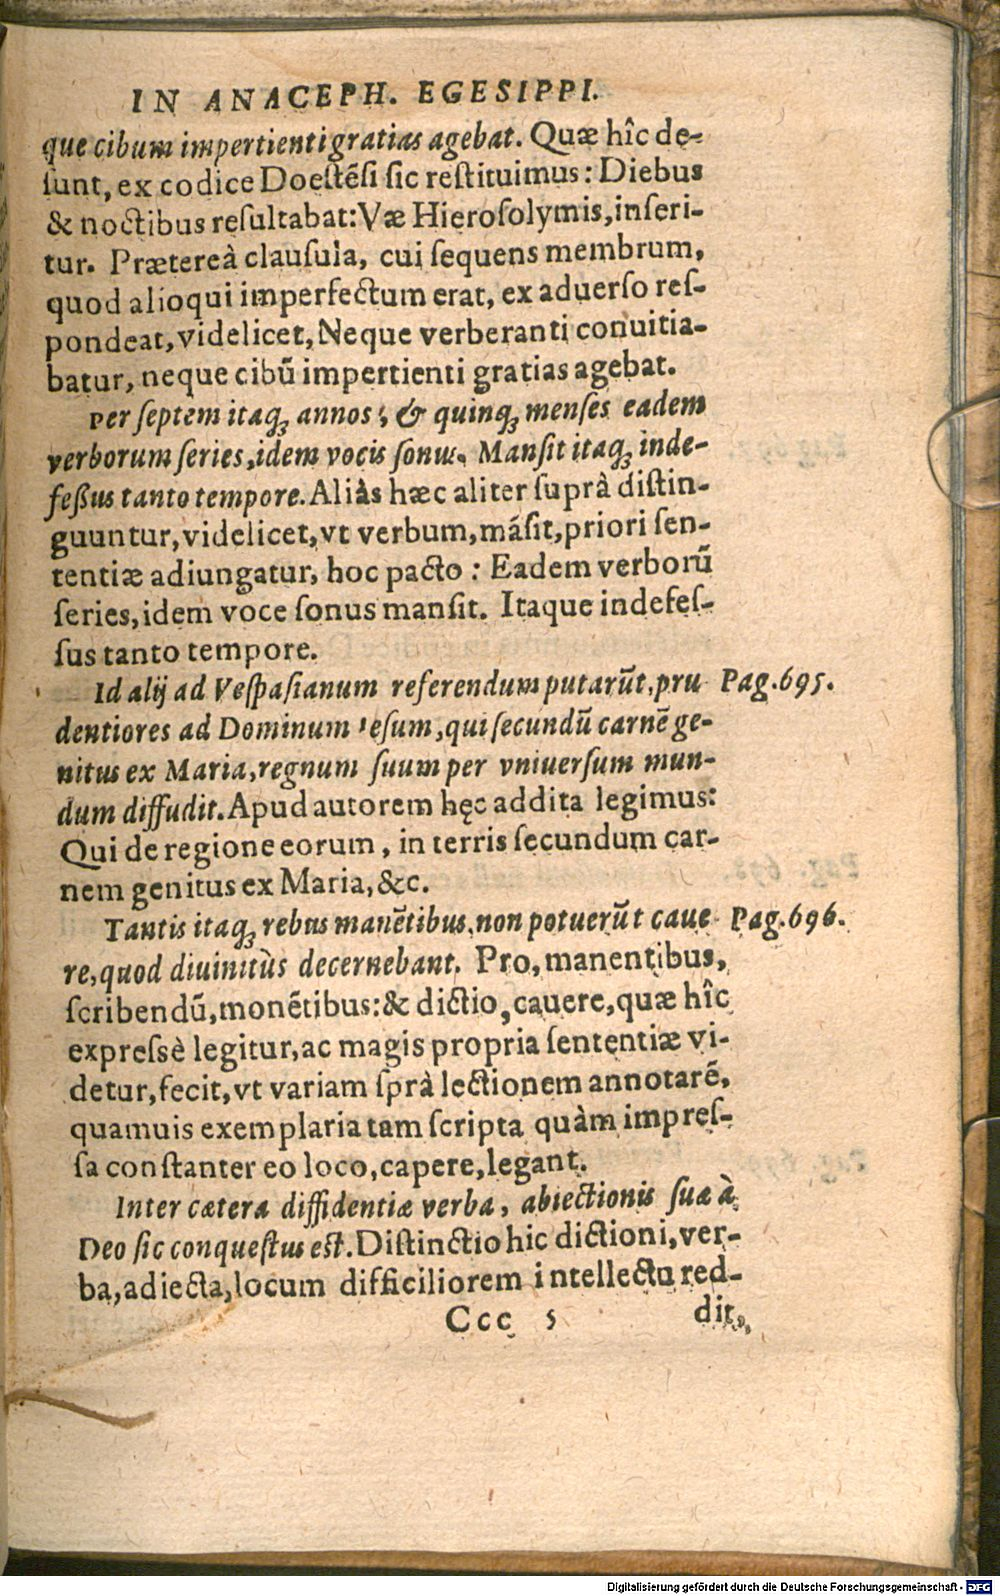 IN ANACEPH. EGESIPPI.
que cibum impertienti gratias agebat. Quæ hîc de-
sunt, ex codice Doestẽsi sic restituimus: Diebus
& noctibus resultabat: Væ Hierosolymis, inseri-
tur. Prætereà clausula, cui sequens membrum,
quod alioqui imperfectum erat, ex aduerso res-
pondeat, videlicet, Neque verberanti conuitia-
batur, neque cibũ impertienti gratias agebat.
Per septem itaq; annos, & quinq; menses eadem
verborum series, idem vocis sonus. Mansit itaq; inde-
feßus tanto tempore. Aliàs hæc aliter suprà distin-
guuntur, videlicet, vt verbum, mãsit, priori sen-
tentiæ adiungatur, hoc pacto: Eadem verborũ
series, idem voce sonus mansit. Itaque indefes-
sus tanto tempore.
Id alij ad Vespasianum referendum putarũt, pru Pag. 695.
dentiores ad Dominum Iesum, qui secundũ carnẽ ge-
nitus ex Maria, regnum suum per vniuersum mun-
dum diffudit. Apud autorem hęc addita legimus:
Qui de regione eorum, in terris secundum car-
nem genitus ex Maria, &c.
Tantis itaq; rebus manẽtibus, non potuerũt caue Pag. 696.
re, quod diuinitùs decernebant. Pro, manentibus,
scribendũ, monẽtibus: & dictio, cauere, quæ hîc
expressè legitur, ac magis propria sententiæ vi-
detur, fecit, vt variam sprà lectionem annotarẽ,
quamuis exemplaria tam scripta quàm impres-
sa constanter eo loco, capere, legant.
Inter cætera diffidentiæ verba, abiectionis suæ à
Deo sic conquestus est. Distinctio hic dictioni, ver-
ba, adiecta, locum difficiliorem intellectu red-
Ccc 5 dit,
Digitalisierung gefördert durch die Deutsche Forschungsgemeinschaft - DFG